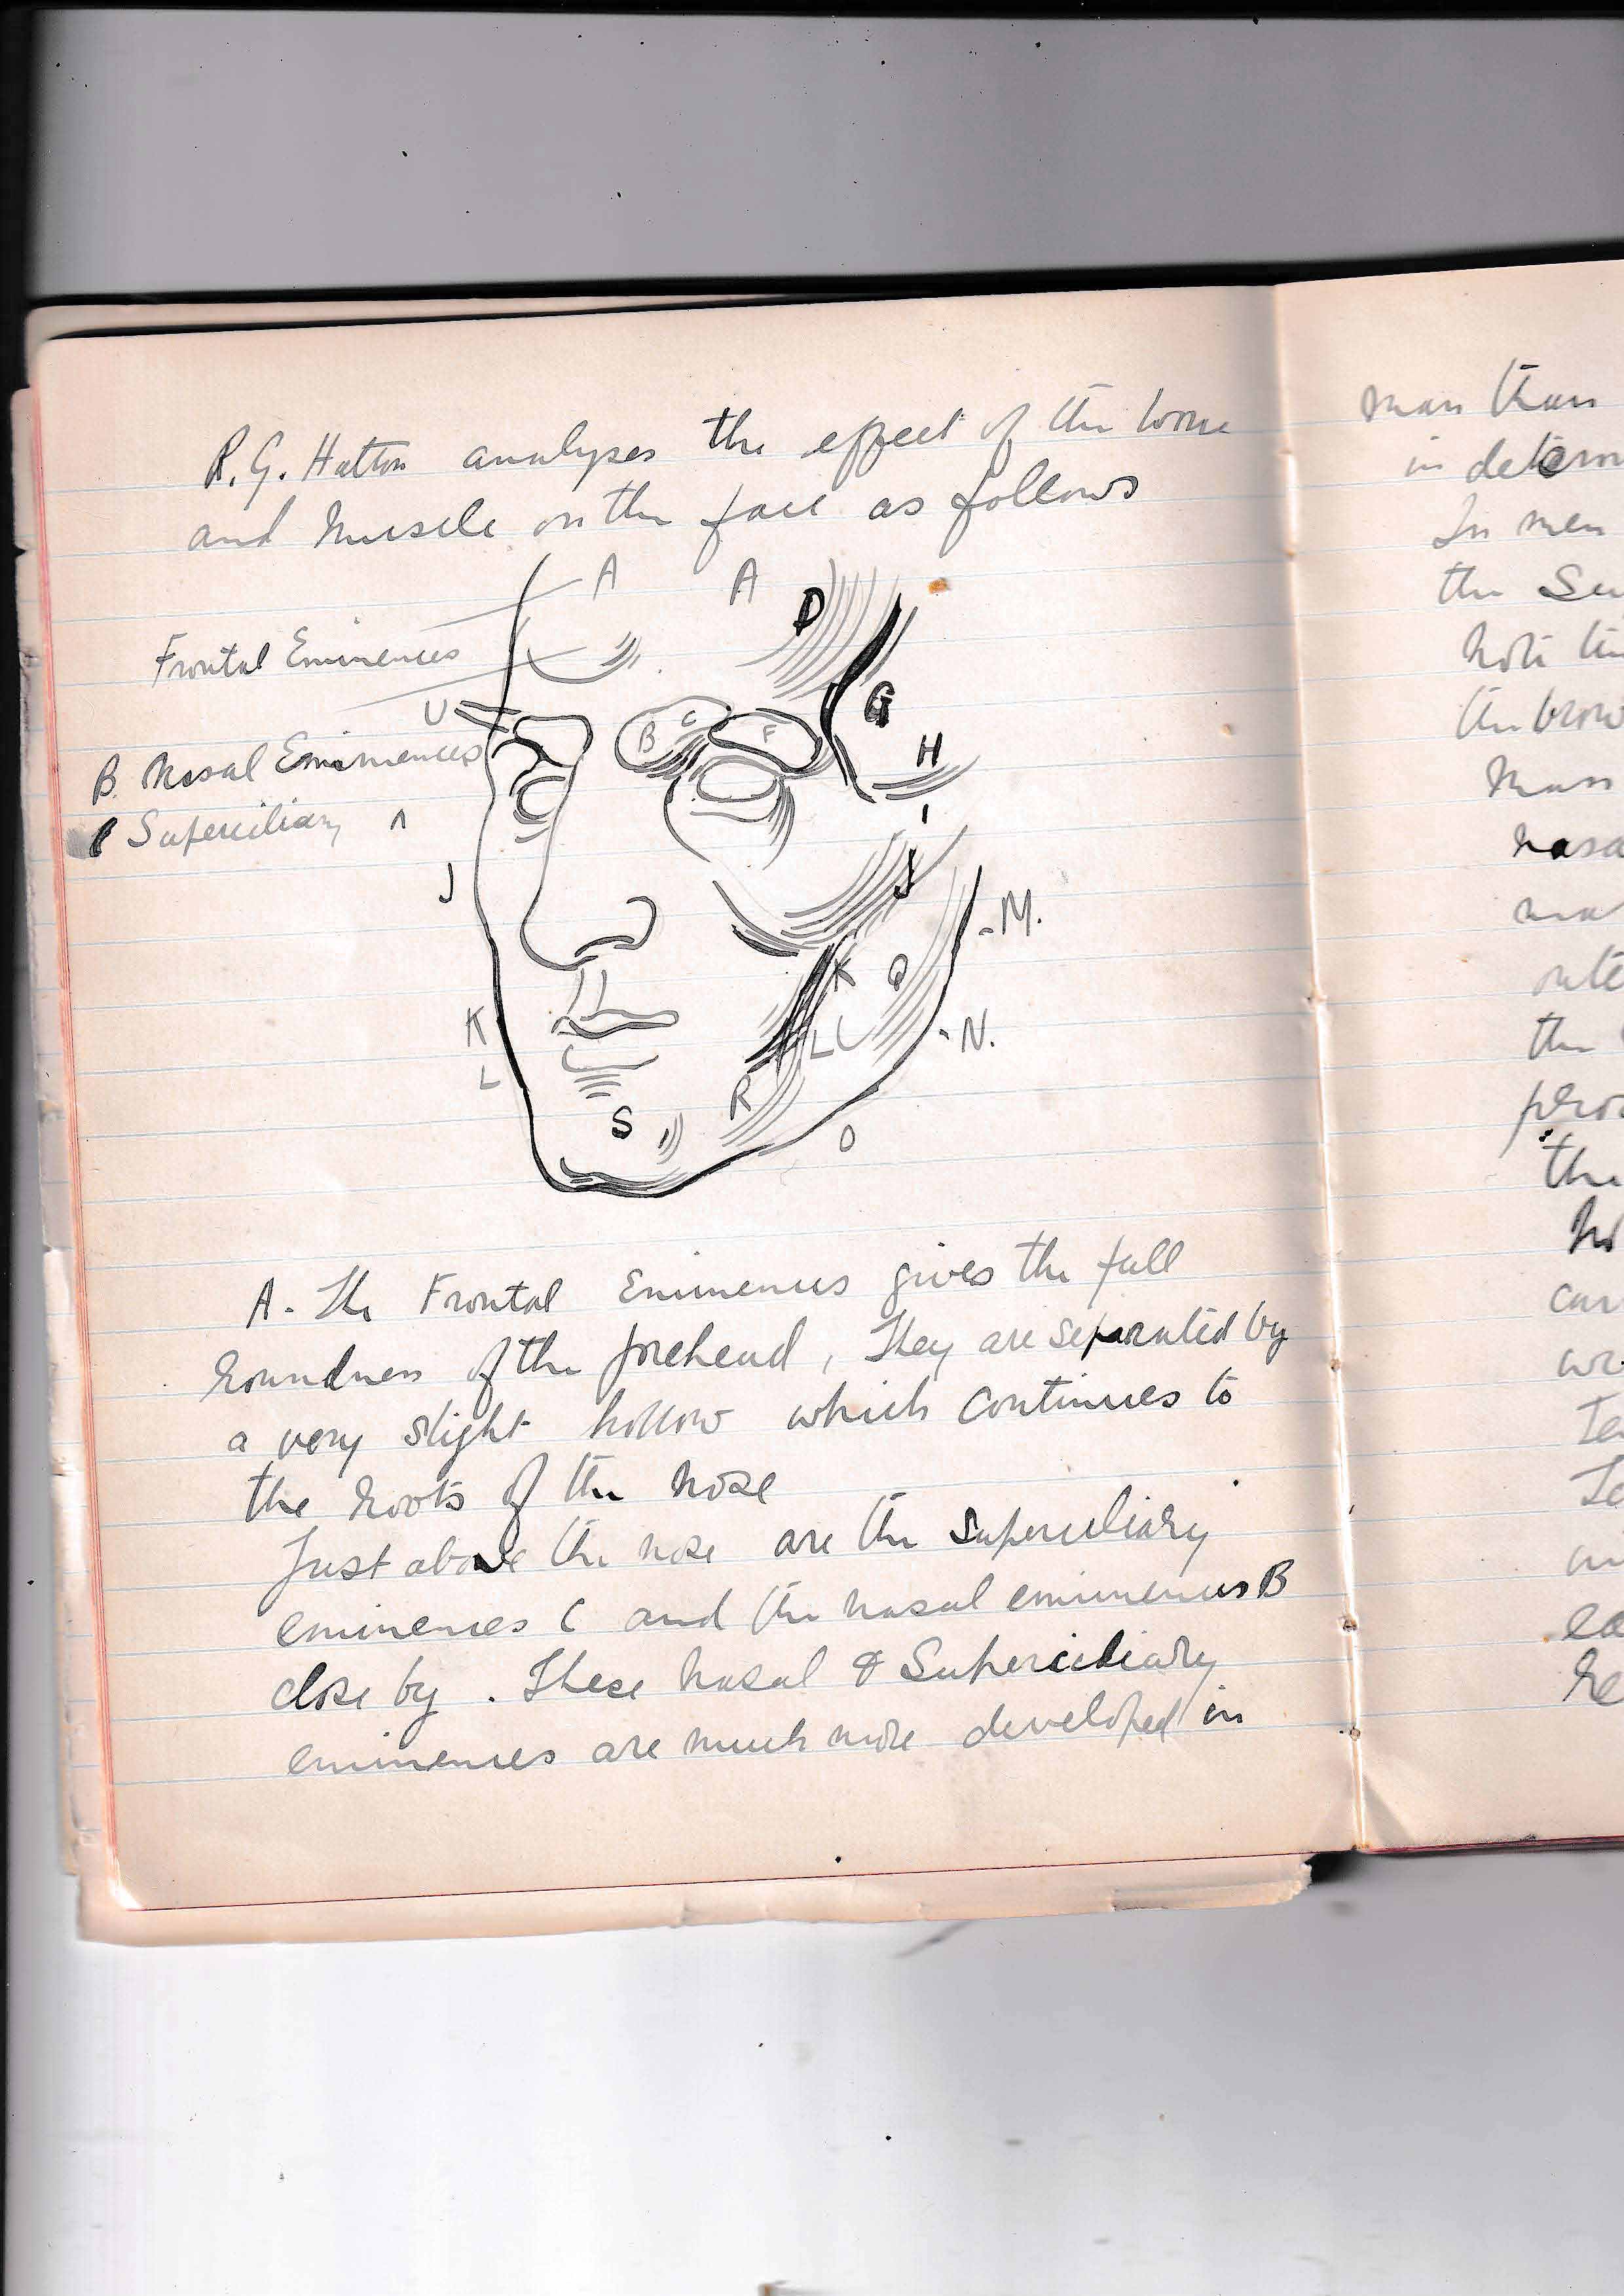 R.G. Hatton analyses the effect of the bone
and Muscle on the face as follows
A A D
Frontal Eminences
U B C F G
H
B. Nasal Eminences
C Superciliary "
I
J J
M.
K K Q
L L N.
R
S O
A. The Frontal Eminences gives the full
roundness of the forehead, They are separated by
a very slight hollow which continues to
the roots of the nose
Just above the nose are the superciliary
eminences C and the nasal eminences B
close by. These nasal & Superciliary
eminences are much more developed in
man than
in
In men
the
the brow